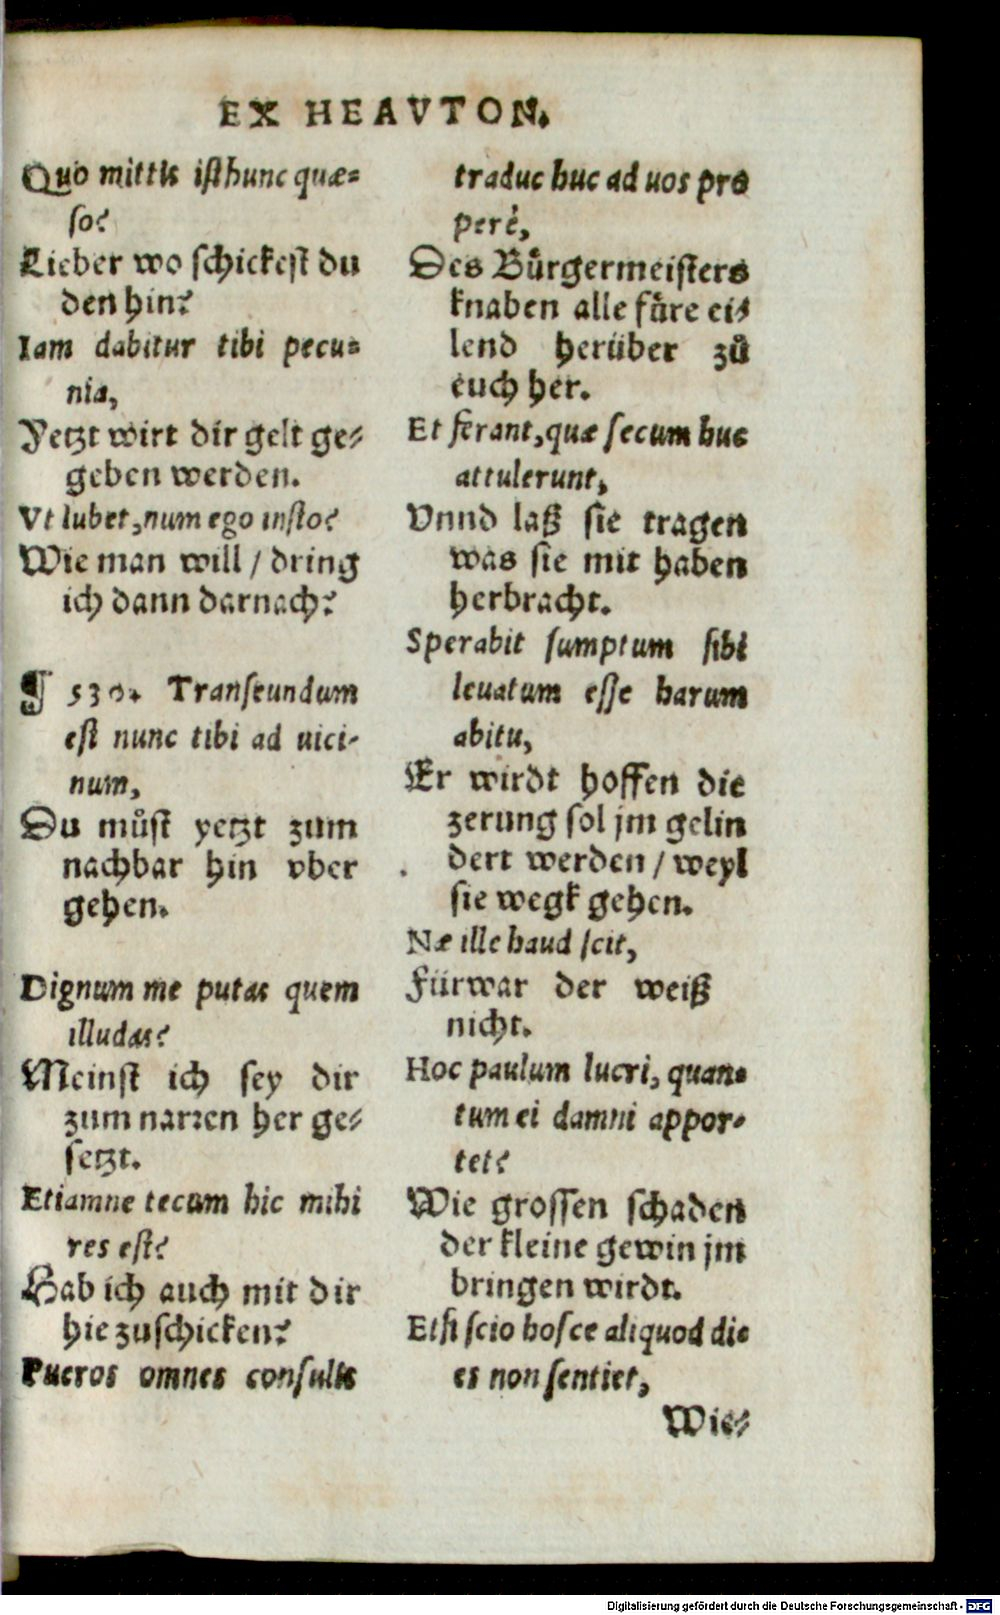 EX HEAVTON.
Quo mittis isthunc quæ=
so?
Lieber wo schickest du
den hin?
Iam dabitur tibi pecu=
nia,
Yetzt wirt dir gelt ge=
geben werden.
Vt lubet, num ego insto?
Wie man will / dring
ich dann darnach?
¶ 530. Transeundum
est nunc tibi ad uici-
num,
Du můst yetzt zum
nachbar hin vber
gehen.
Dignum me putas quem
illudas?
Meinst ich sey dir
zum narren her ge=
setzt.
Etiamne tecum hic mihi
res est?
Hab ich auch mit dir
hie zuschicken?
Pueros omnes consulis
traduc huc ad uos pro
perè,
Des Bürgermeisters
knaben alle füre ei=
lend herüber zů
euch her.
Et ferant, quæ secum huc
attulerunt,
Vnnd laß sie tragen
was sie mit haben
herbracht.
Sperabit sumptum sibi
leuatum esse harum
abitu,
Er wirdt hoffen die
zerung sol jm gelin
dert werden / weyl
sie wegk gehen.
Næ ille haud scit,
Fürwar der weiß
nicht.
Hoc paulum lucri, quan=
tum ei damni appor=
tet?
Wie grossen schaden
der kleine gewin jm
bringen wirdt.
Etsi scio hosce aliquod di=
es non sentiet,
Wie=
Digitalisierung gefördert durch die Deutsche Forschungsgemeinschaft - DFG